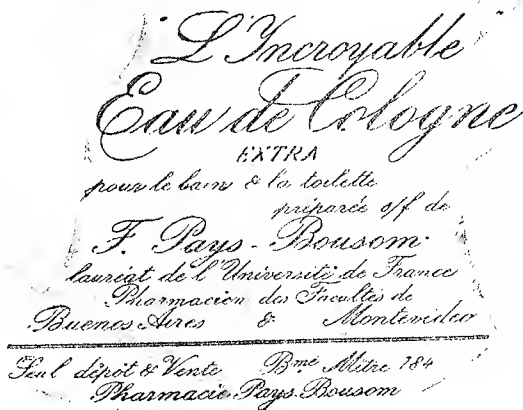 "L'Incroyable"
Eau de Cologne
EXTRA
pour le bain & la toilette
préparée s/f de
F. Pays-Bousom
lauréat de l'Université de France
Pharmacien des Facultés de
Buenos Aires & Montevideo
Seul dépôt & Vente Bmé Mitre 784
Pharmacie Pays-Bousom